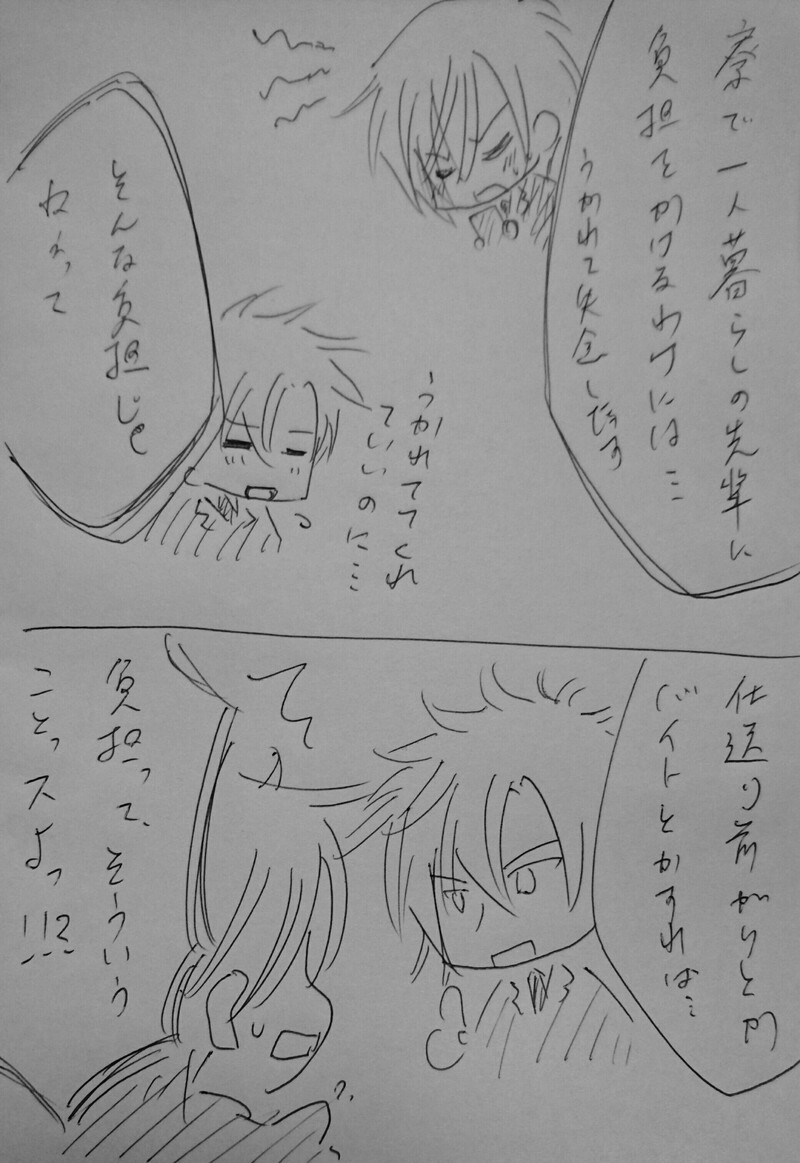 寮で一人暮らしの先輩に
負担をかけるわけには…
うかれて失念したっす
うかれててくれ
ていいのに…
そんな負担じゃ
ねぇって
仕送り前がりとか
バイトとかすれば…
て
負担って、そういう
ことっスよっ!!?